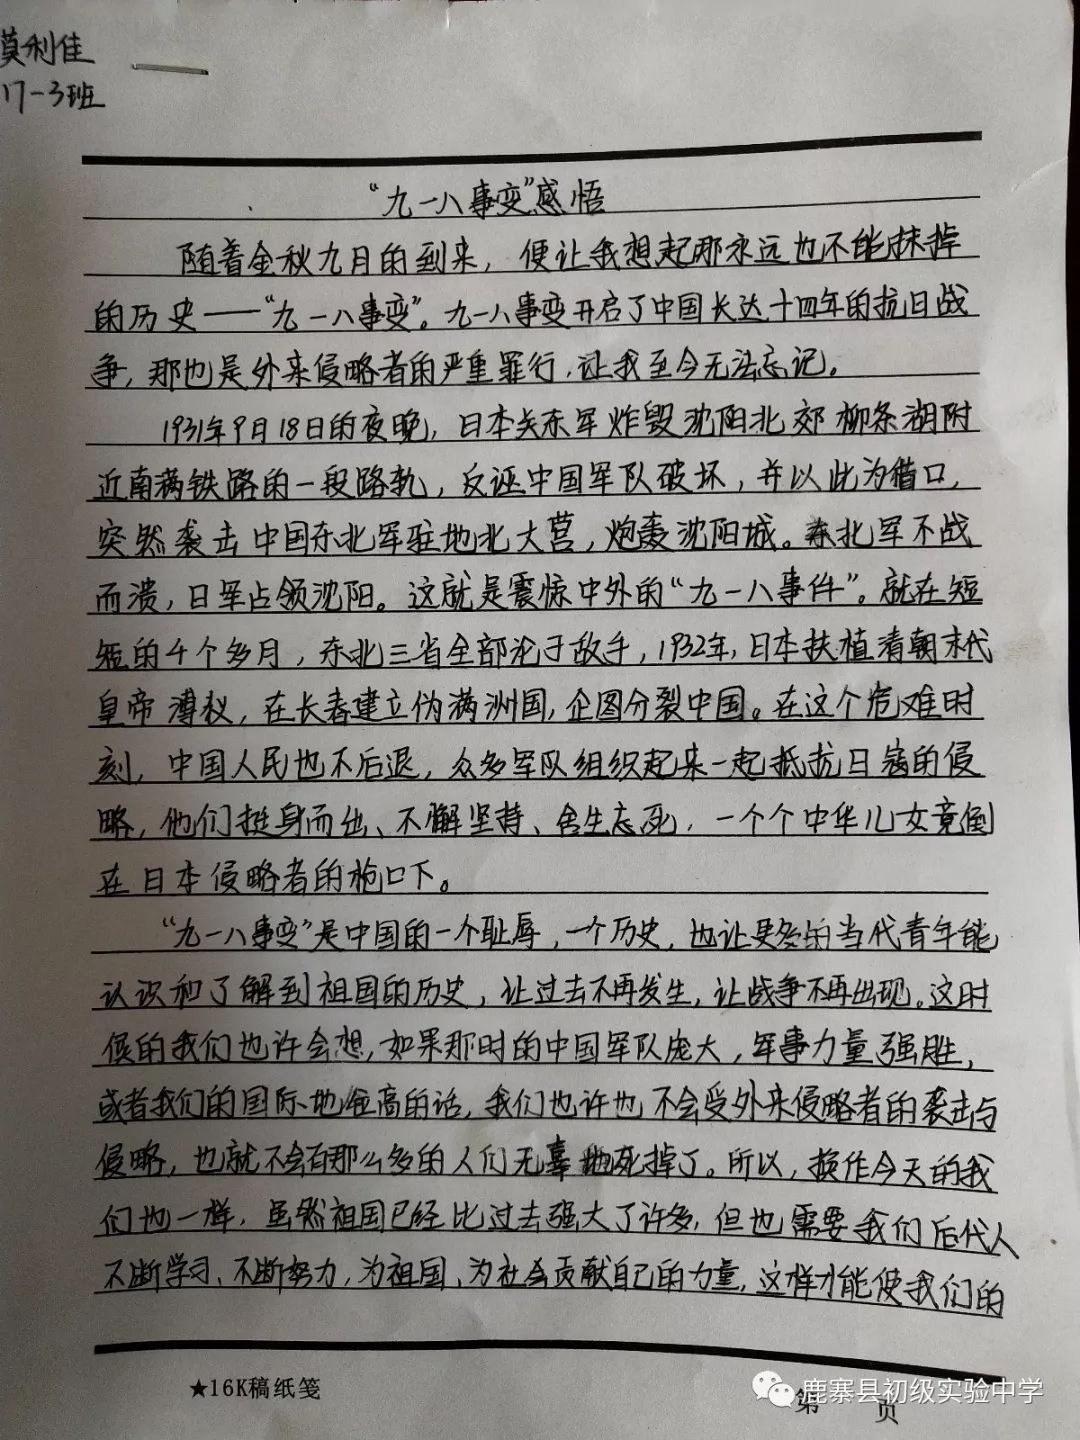 莫利佳
17-3班
“九一八事变”感悟
随着金秋九月的到来，便让我想起那永远也不能抹掉
的历史——“九一八事变”。九一八事变开启了中国长达十四年的抗日战
争，那也是外来侵略者的严重罪行，让我至今无法忘记。
1931年9月18日的夜晚，日本关东军炸毁沈阳北郊柳条湖附
近南满铁路的一段路轨，反诬中国军队破坏，并以此为借口，
突然袭击中国东北军驻地北大营，炮轰沈阳城。东北军不战
而溃，日军占领沈阳。这就是震惊中外的“九一八事件”。就在短
短的4个多月，东北三省全部沦于敌手，1932年，日本扶植清朝末代
皇帝溥仪，在长春建立伪满洲国，企图分裂中国。在这个危难时
刻，中国人民也不后退，众多军队组织起来一起抵抗日寇的侵
略，他们挺身而出、不懈坚持、舍生忘死，一个个中华儿女竟倒
在日本侵略者的枪口下。
“九一八事变”是中国的一个耻辱，一个历史，也让更多的当代青年能
认识和了解到祖国的历史，让过去不再发生，让战争不再出现。这时
候的我们也许会想，如果那时的中国军队庞大，军事力量强胜，
或者我们的国际地位高的话，我们也许也不会受外来侵略者的袭击与
侵略，也就不会有那么多的人们无辜地死掉了。所以，换作今天的我
们也一样，虽然祖国已经比过去强大了许多，但也需要我们后代人
不断学习、不断努力，为祖国、为社会贡献自己的力量，这样才能使我们的
★16K稿纸笺
第 页
鹿寨县初级实验中学